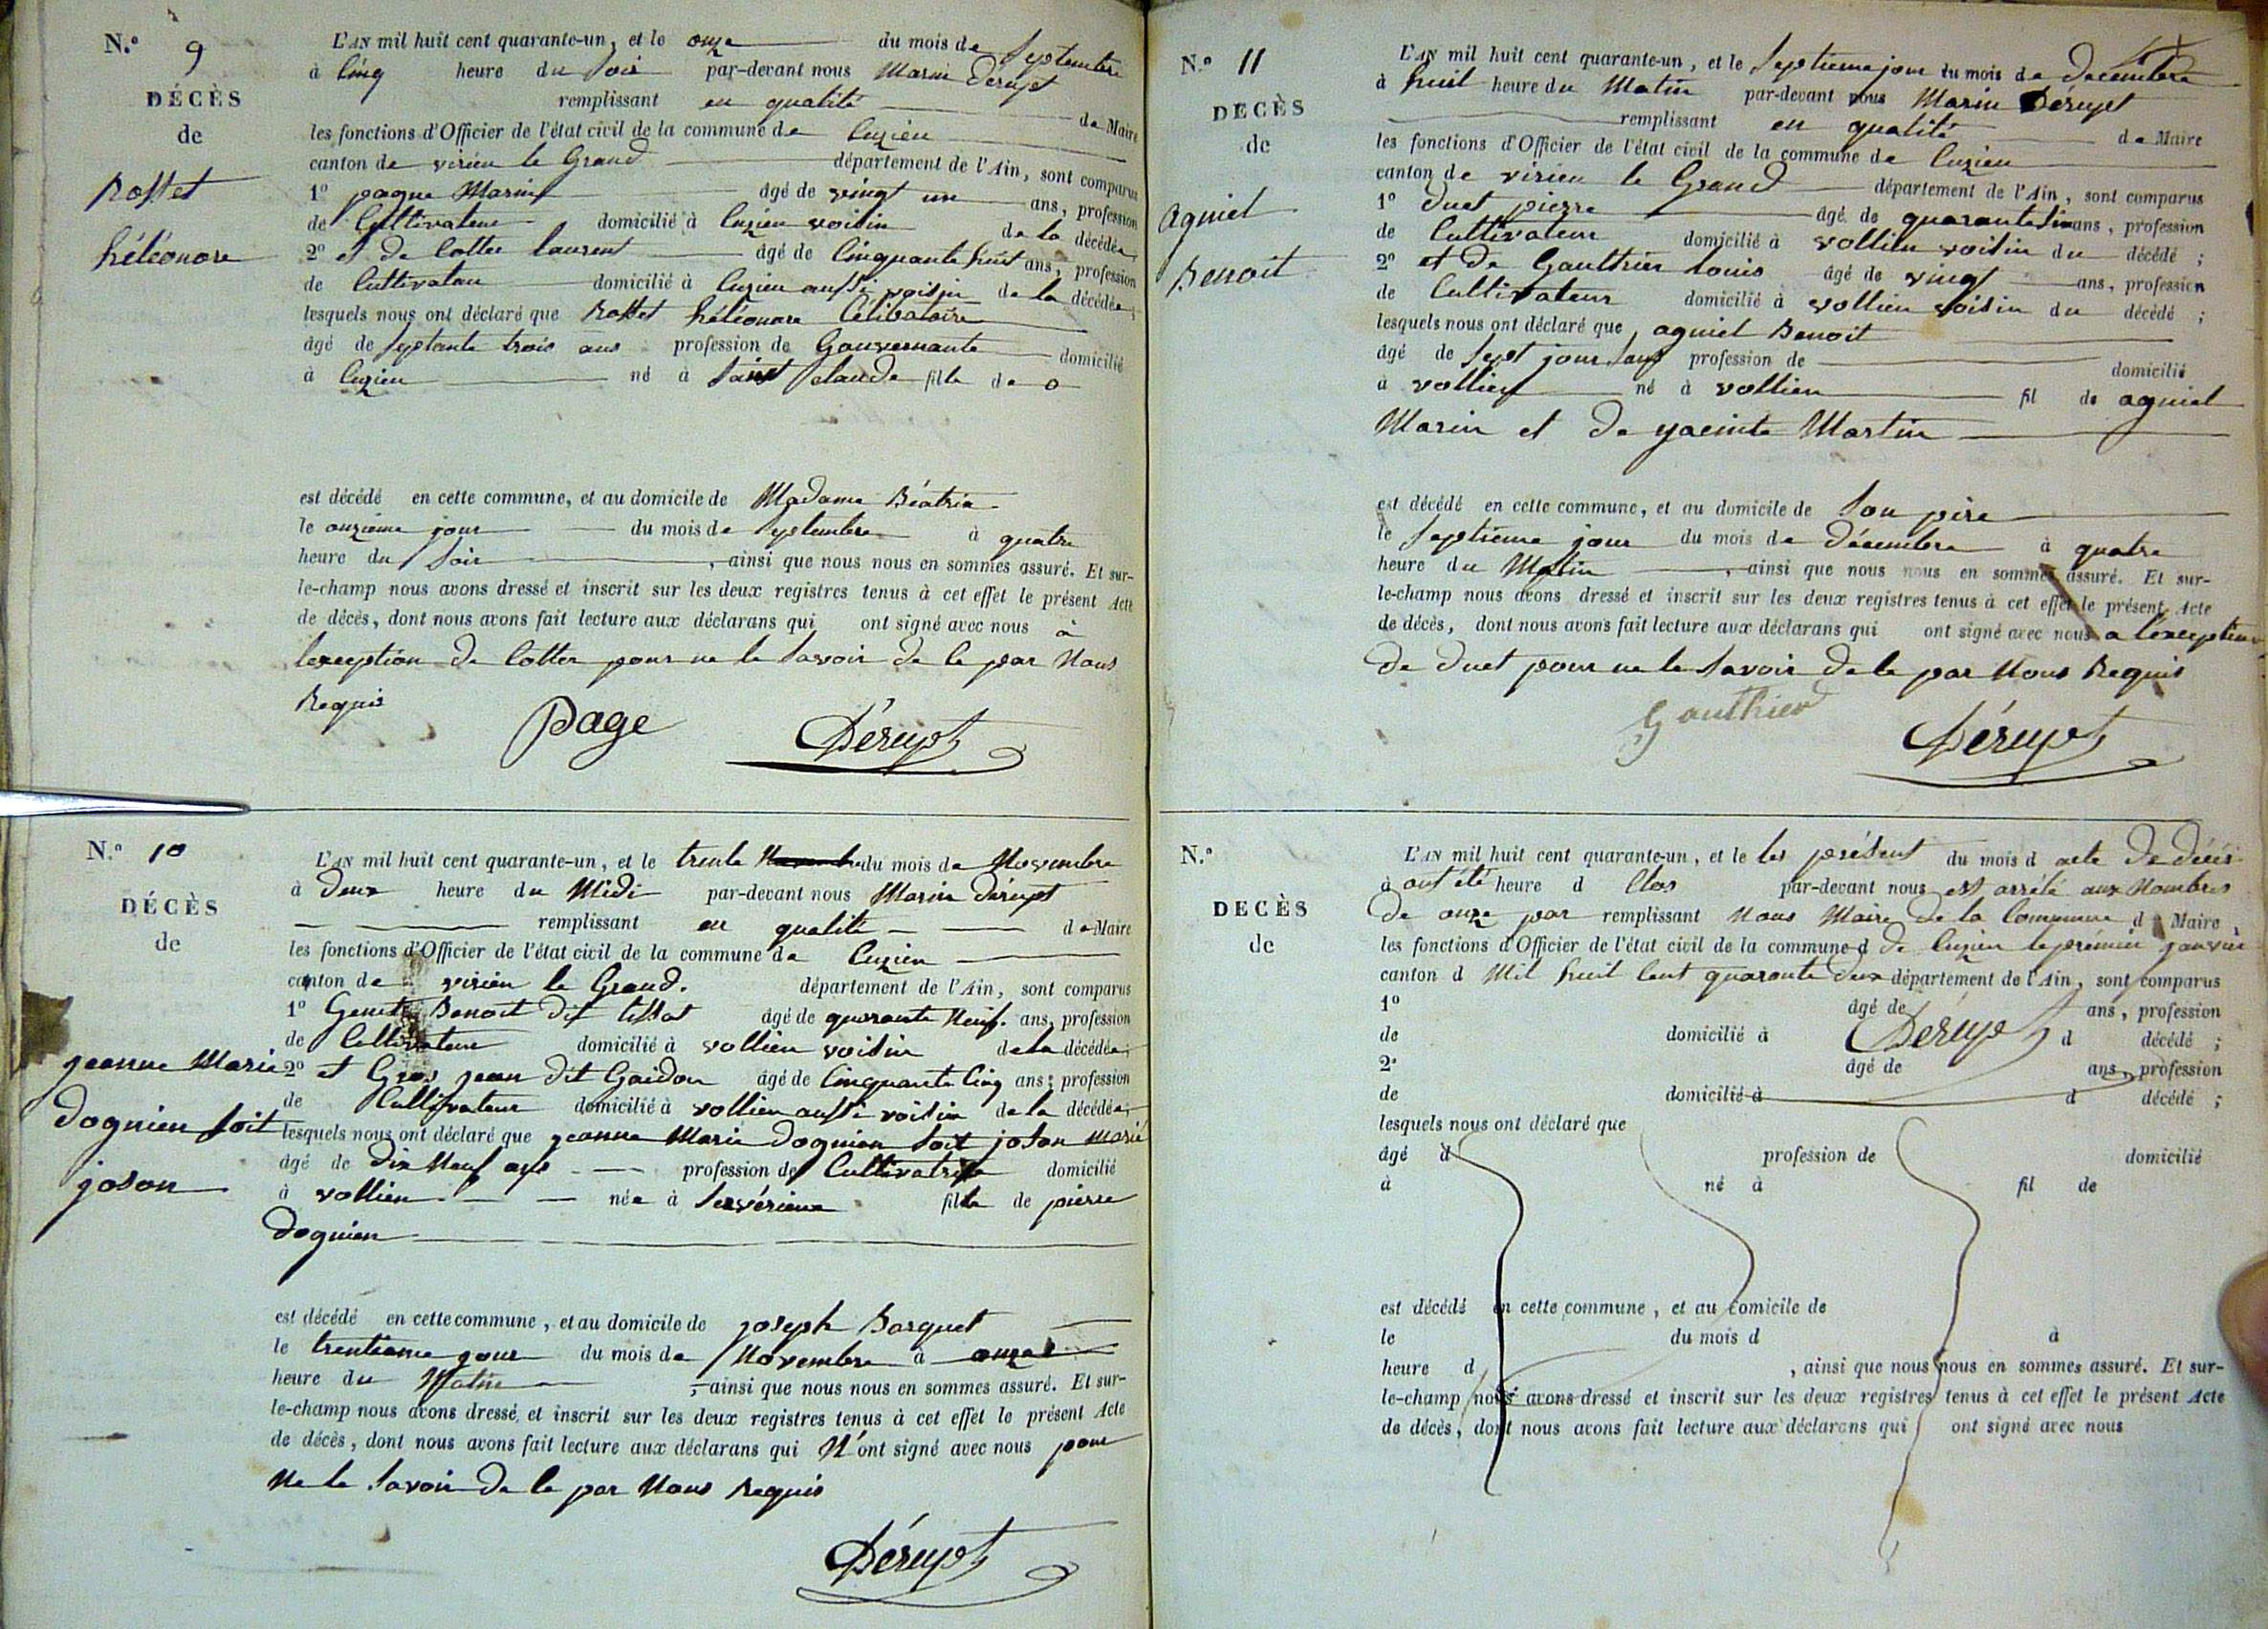 N.° 9
DÉCÈS
de
Rosset
héléonore
L'AN mil huit cent quarante-un, et le onze du mois de Septembre
à Cinq heure du Soir par-devant nous Marin Dérupt
remplissant en qualité de Maire
les fonctions d'Officier de l'état civil de la commune de Cuzieu
canton de virieu le Grand département de l'Ain, sont comparus
1° page Marin âgé de vingt un ans, profession
de Cultivateur domicilié à Cuzieu voisin de la décédée
2° et de Cotter laurent âgé de Cinquante huit ans, profession
de Cultivateur domicilié à Cuzieu aussi voisin de la décédée;
lesquels nous ont déclaré que Rosset héléonore Célibataire
âgé de Septante trois ans profession de Gouvernante domicilié
à Cuzieu né à Saint Claude fille de o
est décédé en cette commune, et au domicile de Madame Béatrix
le onzième jour du mois de Septembre à quatre
heure du Soir, ainsi que nous nous en sommes assuré. Et sur-
le-champ nous avons dressé et inscrit sur les deux registres tenus à cet effet le présent Acte
de décès, dont nous avons fait lecture aux déclarans qui ont signé avec nous à
lexception de Cotter pour ne le Savoir de ce par Nous
Requis
Page Dérupt
N.° 10
DÉCÈS
de
jeanne Marie
dognien soit
joson
L'AN mil huit cent quarante-un, et le trente du mois de Novembre
à deux heure du Midi par-devant nous Marin Dérupt
remplissant en qualité de Maire
les fonctions d'Officier de l'état civil de la commune de Cuzieu
canton de virieu le Grand. département de l'Ain, sont comparus
1° Benoit dit tissot âgé de quarante Neuf. ans, profession
de Cultivateur domicilié à vollien voisin de la décédée;
2° et Gros jean dit Gaidon âgé de Cinquante Cinq ans, profession
de Cultivateur domicilié à vollien aussi voisin de la décédée;
lesquels nous ont déclaré que jeanne Marie dognien soit joson Marié
âgé de dix Neuf ans profession de Cultivatrice domicilié
à vollien née à Servérieux fille de pierre
dognien
est décédé en cette commune, et au domicile de joseph Barquet
le trentième jour du mois de Novembre à onze
heure du Matin, ainsi que nous nous en sommes assuré. Et sur-
le-champ nous avons dressé et inscrit sur les deux registres tenus à cet effet le présent Acte
de décès, dont nous avons fait lecture aux déclarans qui N'ont signé avec nous pour
Ne le Savoir de ce par Nous Requis
Dérupt
N.° 11
DÉCÈS
de
agniel
Benoit
L'AN mil huit cent quarante-un, et le Septieme jour du mois de decembre
à huit heure du Matin par-devant nous Marin Dérupt
remplissant en qualité de Maire
les fonctions d'Officier de l'état civil de la commune de Cuzieu
canton de virieu le Grand département de l'Ain, sont comparus
1° duet pierre âgé de quarante Six ans, profession
de Cultivateur domicilié à vollien voisin du décédé;
2° et de Gauthier louis âgé de vingt ans, profession
de Cultivateur domicilié à vollien voisin du décédé;
lesquels nous ont déclaré que agniel Benoit
âgé de Sept jour Sans profession de domicilié
à vollien né à vollien fil de agniel
Marin et de yacinte Martin
est décédé en cette commune, et au domicile de Son père
le Septieme jour du mois de Décembre à quatre
heure du Matin, ainsi que nous nous en sommes assuré. Et sur-
le-champ nous avons dressé et inscrit sur les deux registres tenus à cet effet le présent Acte
de décès, dont nous avons fait lecture aux déclarans qui ont signé avec nous a l'exception
de duet pour ne le Savoir de ce par Nous Requis
Gauthier Dérupt
N.°
DÉCÈS
de
L'AN mil huit cent quarante-un, et le les présent du mois d acte de décès
à ont été heure d Clos par-devant nous est arrêté aux Nombres
de onze par remplissant Nous Maire de la Commune d Maire
les fonctions d'Officier de l'état civil de la commune d de Cuzieu le prémier janvier
canton d Mil huit Cent quarante deux département de l'Ain, sont comparus
1° âgé de ans, profession
de domicilié à Dérupt d décédé;
2° âgé de ans, profession
de domicilié à d décédé;
lesquels nous ont déclaré que
âgé d profession de domicilié
à né à fil de
est décédé en cette commune, et au domicile de
le du mois d à
heure d, ainsi que nous nous en sommes assuré. Et sur-
le-champ nous avons dressé et inscrit sur les deux registres tenus à cet effet le présent Acte
de décès, dont nous avons fait lecture aux déclarans qui ont signé avec nous